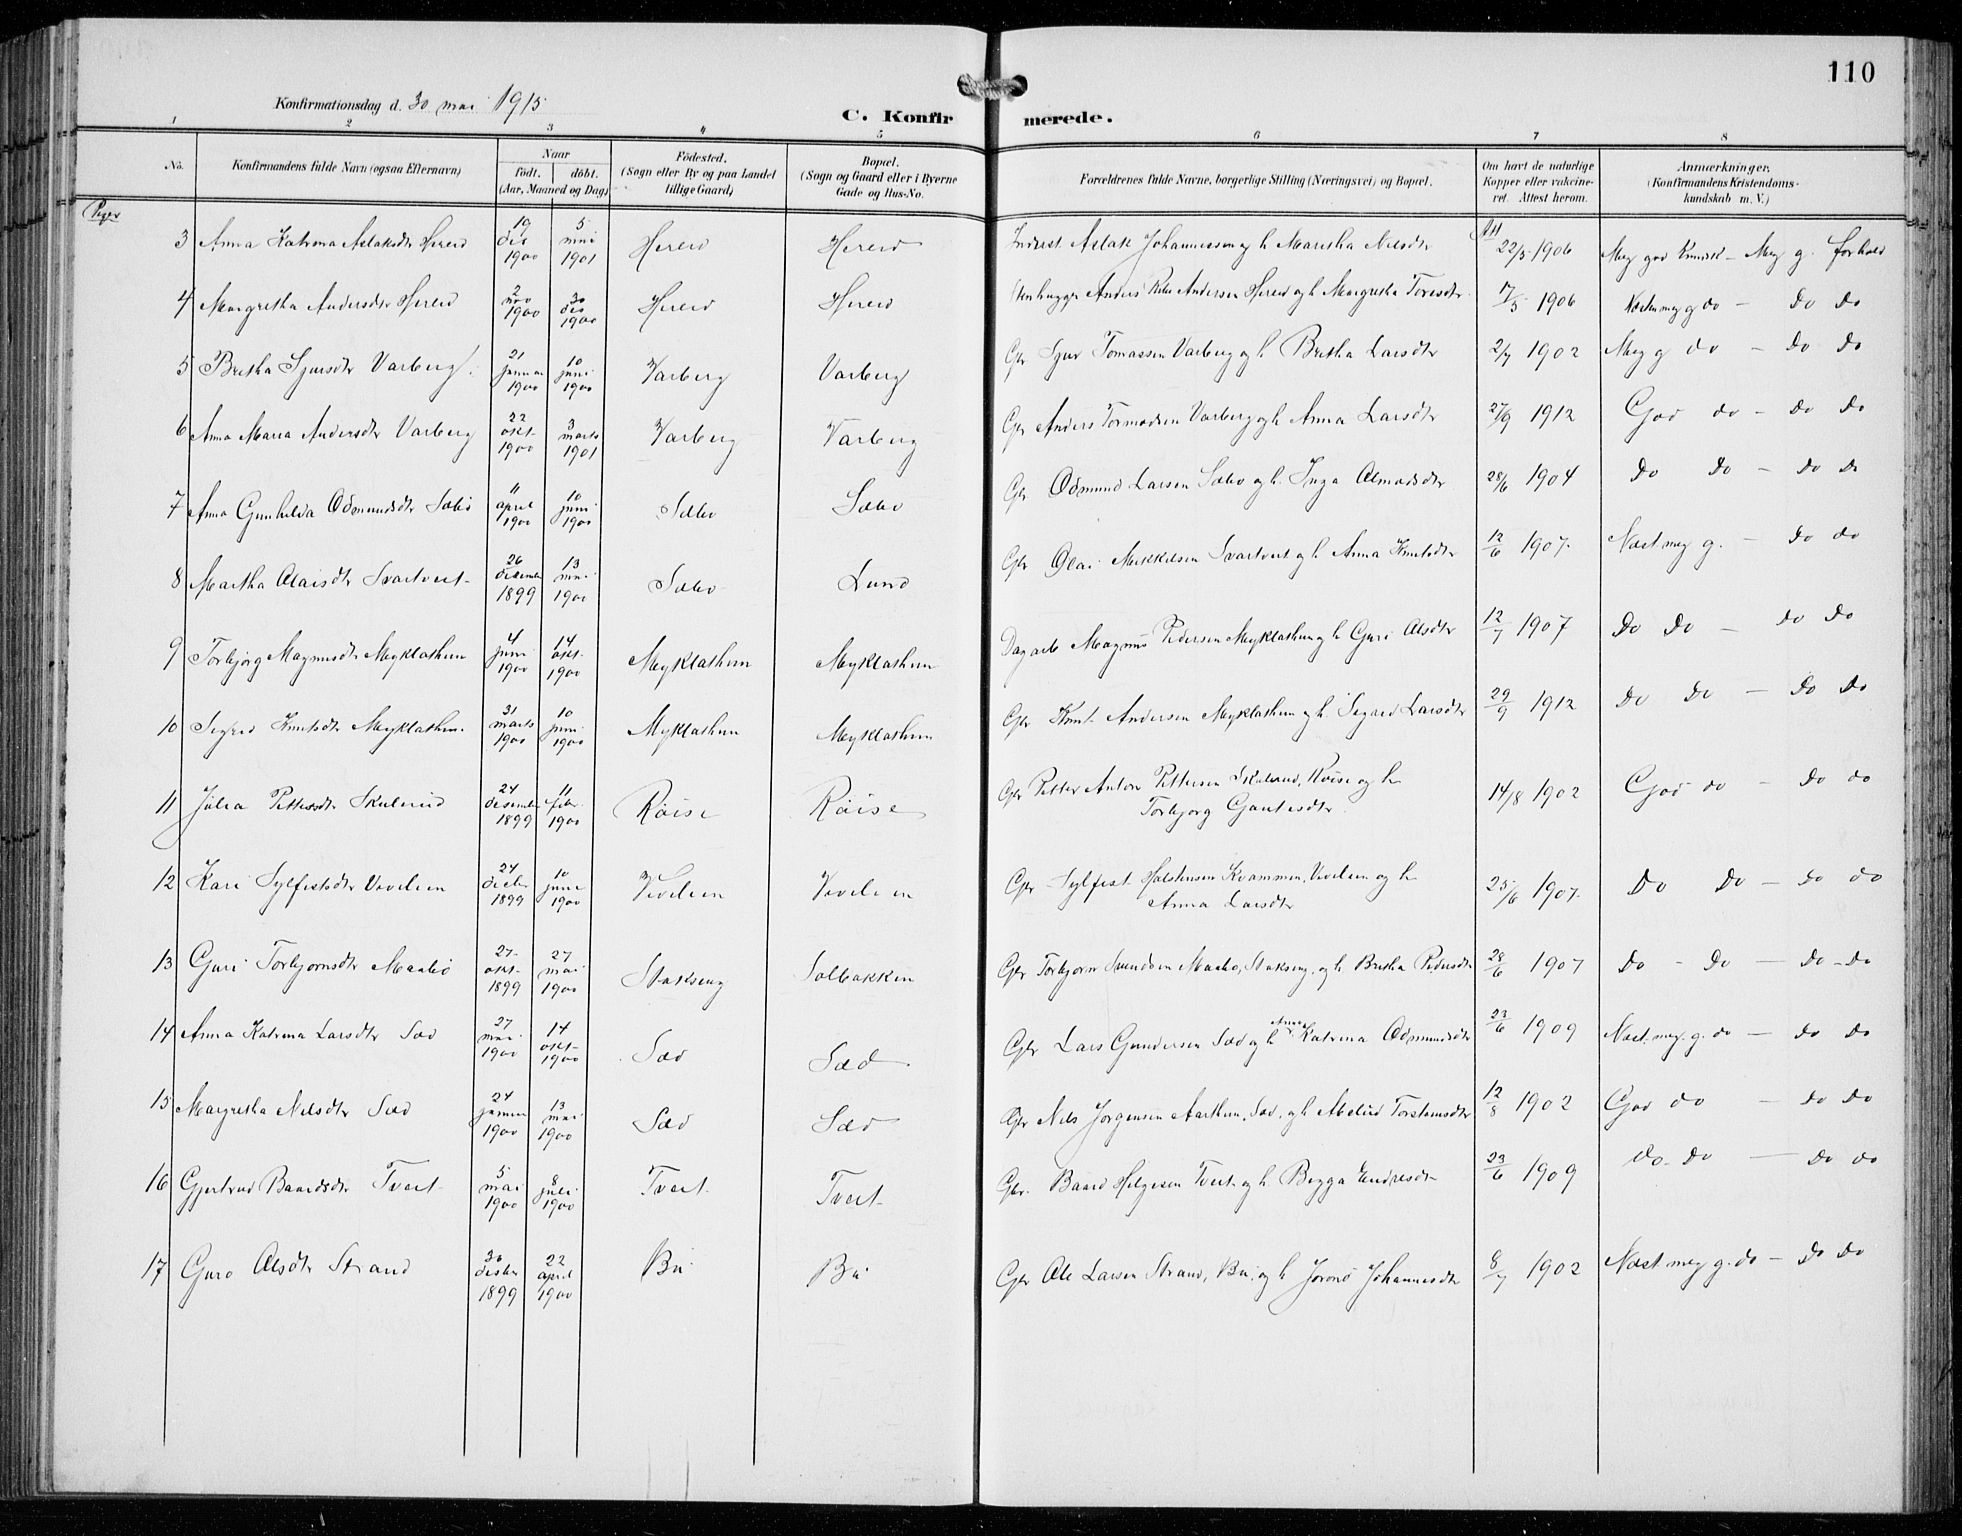 110
Konfirmationsdag d. 30 mai 1915
C. Konfirmerede.
1 2 3 4 5 6 7 8
No. Konfirmandens fulde Navn (ogsaa Efternavn) Naar født. døbt. (Aar, Maaned og Dag) Fødested. (Sogn eller By og paa Landet tillige Gaard) Bopæl. (Sogn og Gaard eller i Byerne Gade og Hus-No. Forældrenes fulde Navne, borgerlige Stilling (Næringsvei) og Bopæl. Om havt de naturlige Kopper eller vakcineret. Attest herom. Anmærkninger. (Konfirmandens Kristendomskundskab m. V.)
Piger
3 Anna Katrina Aslaksdtr Hereid 19 des 1900 5 mai 1901 Hereid Hereid Inderst. Aslak Johannessen og h. Maritha Nilsdtr Att 22/5 1906 Meg god Kundsk - Meg g. forhold
4 Margretha Andersdtr Hereid 2 nov 1900 30 des 1900 Hereid Hereid Stenhugger Anders Andersen Hereid og h. Margretha Toresdtr 17/5 1906 Næsten meg g do - Do Do
5 Britha Sjursdtr Varberg 21 januar 1900 10 juni 1900 Varberg Varberg Gbr Sjur Tomassen Varberg og h. Britha Larsdtr 2/7 1902 Meg g do - Do Do
6 Anna Maria Andersdtr Varberg 22 okt. 1900 3 marts 1901 Varberg Varberg Gbr Anders Tormodsen Varberg og h. Anna Larsdtr 27/9 1912 God do - Do Do
7 Anna Gunhilda Odmundsdtr Sæbø 11 april 1900 10 juni 1900 Sæbø Sæbø Gbr Odmund Larsen Sæbø og h. Inga Asmundsdtr 28/6 1904 Do Do - Do Do
8 Martha Olaisdtr Svartveit 26 desember 1899 13 mai 1900 Sæbø Lund Gbr Olai Mikkelsen Svartveit og h. Anna Knutsdtr 12/6 1907 Næst meg g. - do do
9 Torbjørg Magnusdtr Myklathun 4 juni 1900 14 okt. 1900 Myklathun Myklathun Dagarb Magnus Pedersen Myklathun og h. Guri Olsdtr 12/7 1907 Do Do - Do Do
10 Sigrid Knutsdtr Myklathun 31 marts 1900 10 juni 1900 Myklathun Myklathun Gbr Knut Andersen Myklathun og h. Sigrid Larsdtr 29/9 1912 Do Do - Do Do
11 Julia Pettersdtr Skulerud 24 desember 1899 11 febr. 1900 Røise Røise Gbr Petter Anton Pettersen Skulerud, Røise og h.
Torbjørg Gautesdtr 14/8 1902 God do - Do do
12 Kari Sylfestsdtr Viveliern 24 decbr 1899 10 juni 1900 Gbr Sylfest Halstensen Kvammen, og h
Anna Larsdtr 25/6 1907 Do Do - Do do
13 Guri Torbjørnsdtr Maabø 27 okt. 1899 27 mai 1900 Stakseng Solbakken Gbr Torbjørn Svendsen Maabø, Stakseng, og h. Britha Pedersdtr 28/6 1907 Do - Do - Do - Do
14 Anna Katrina Larsdtr Sæd 27 mai 1900 14 okt. 1900 Sæd Sæd Gbr Lars Gundersen Sæd og h. Anna Katrina Odmundsdtr 23/6 1909 Næst. meg. g. do - Do Do
15 Margretha Nilsdtr Sæd 24 januar 1900 13 mai 1900 Sæd Sæd Gbr Nils Jørgensen Aarthun, Sæd, og h. Abelid Torsteinsdtr 12/8 1902 God do - Do Do
16 Gjertrud Baardsdtr Tveit 5 mai 1900 8 juli 1900 Tveit Tveit Gbr. Baard Helgesen Tveit og h. Bryga Endresdtr 23/6 1909 Do. Do - Do Do
17 Guro Olsdtr Strand 30 desbr 1899 22 april 1900 Bu Bu Gbr Ole Larsen Strand, Bu, og h Jorond Johannesdtr 8/7 1902 Næst meg g. do - Do Do